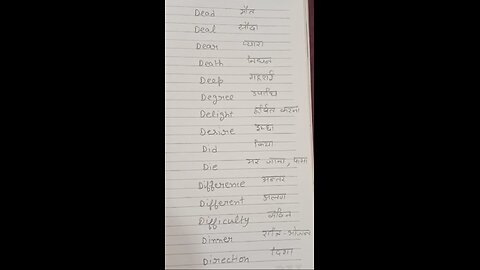 Dead मौत
Deal सौदा
Dear प्यारा
Death निधन
Deep गहराई
Degree उपाधि
Delight हर्षित करना
Desire इच्छा
Did किया
Die मर जाना,
Difference अन्तर
Different अलग
Difficulty कठिन
Dinner रात्रि-भोजन
Direction दिशा